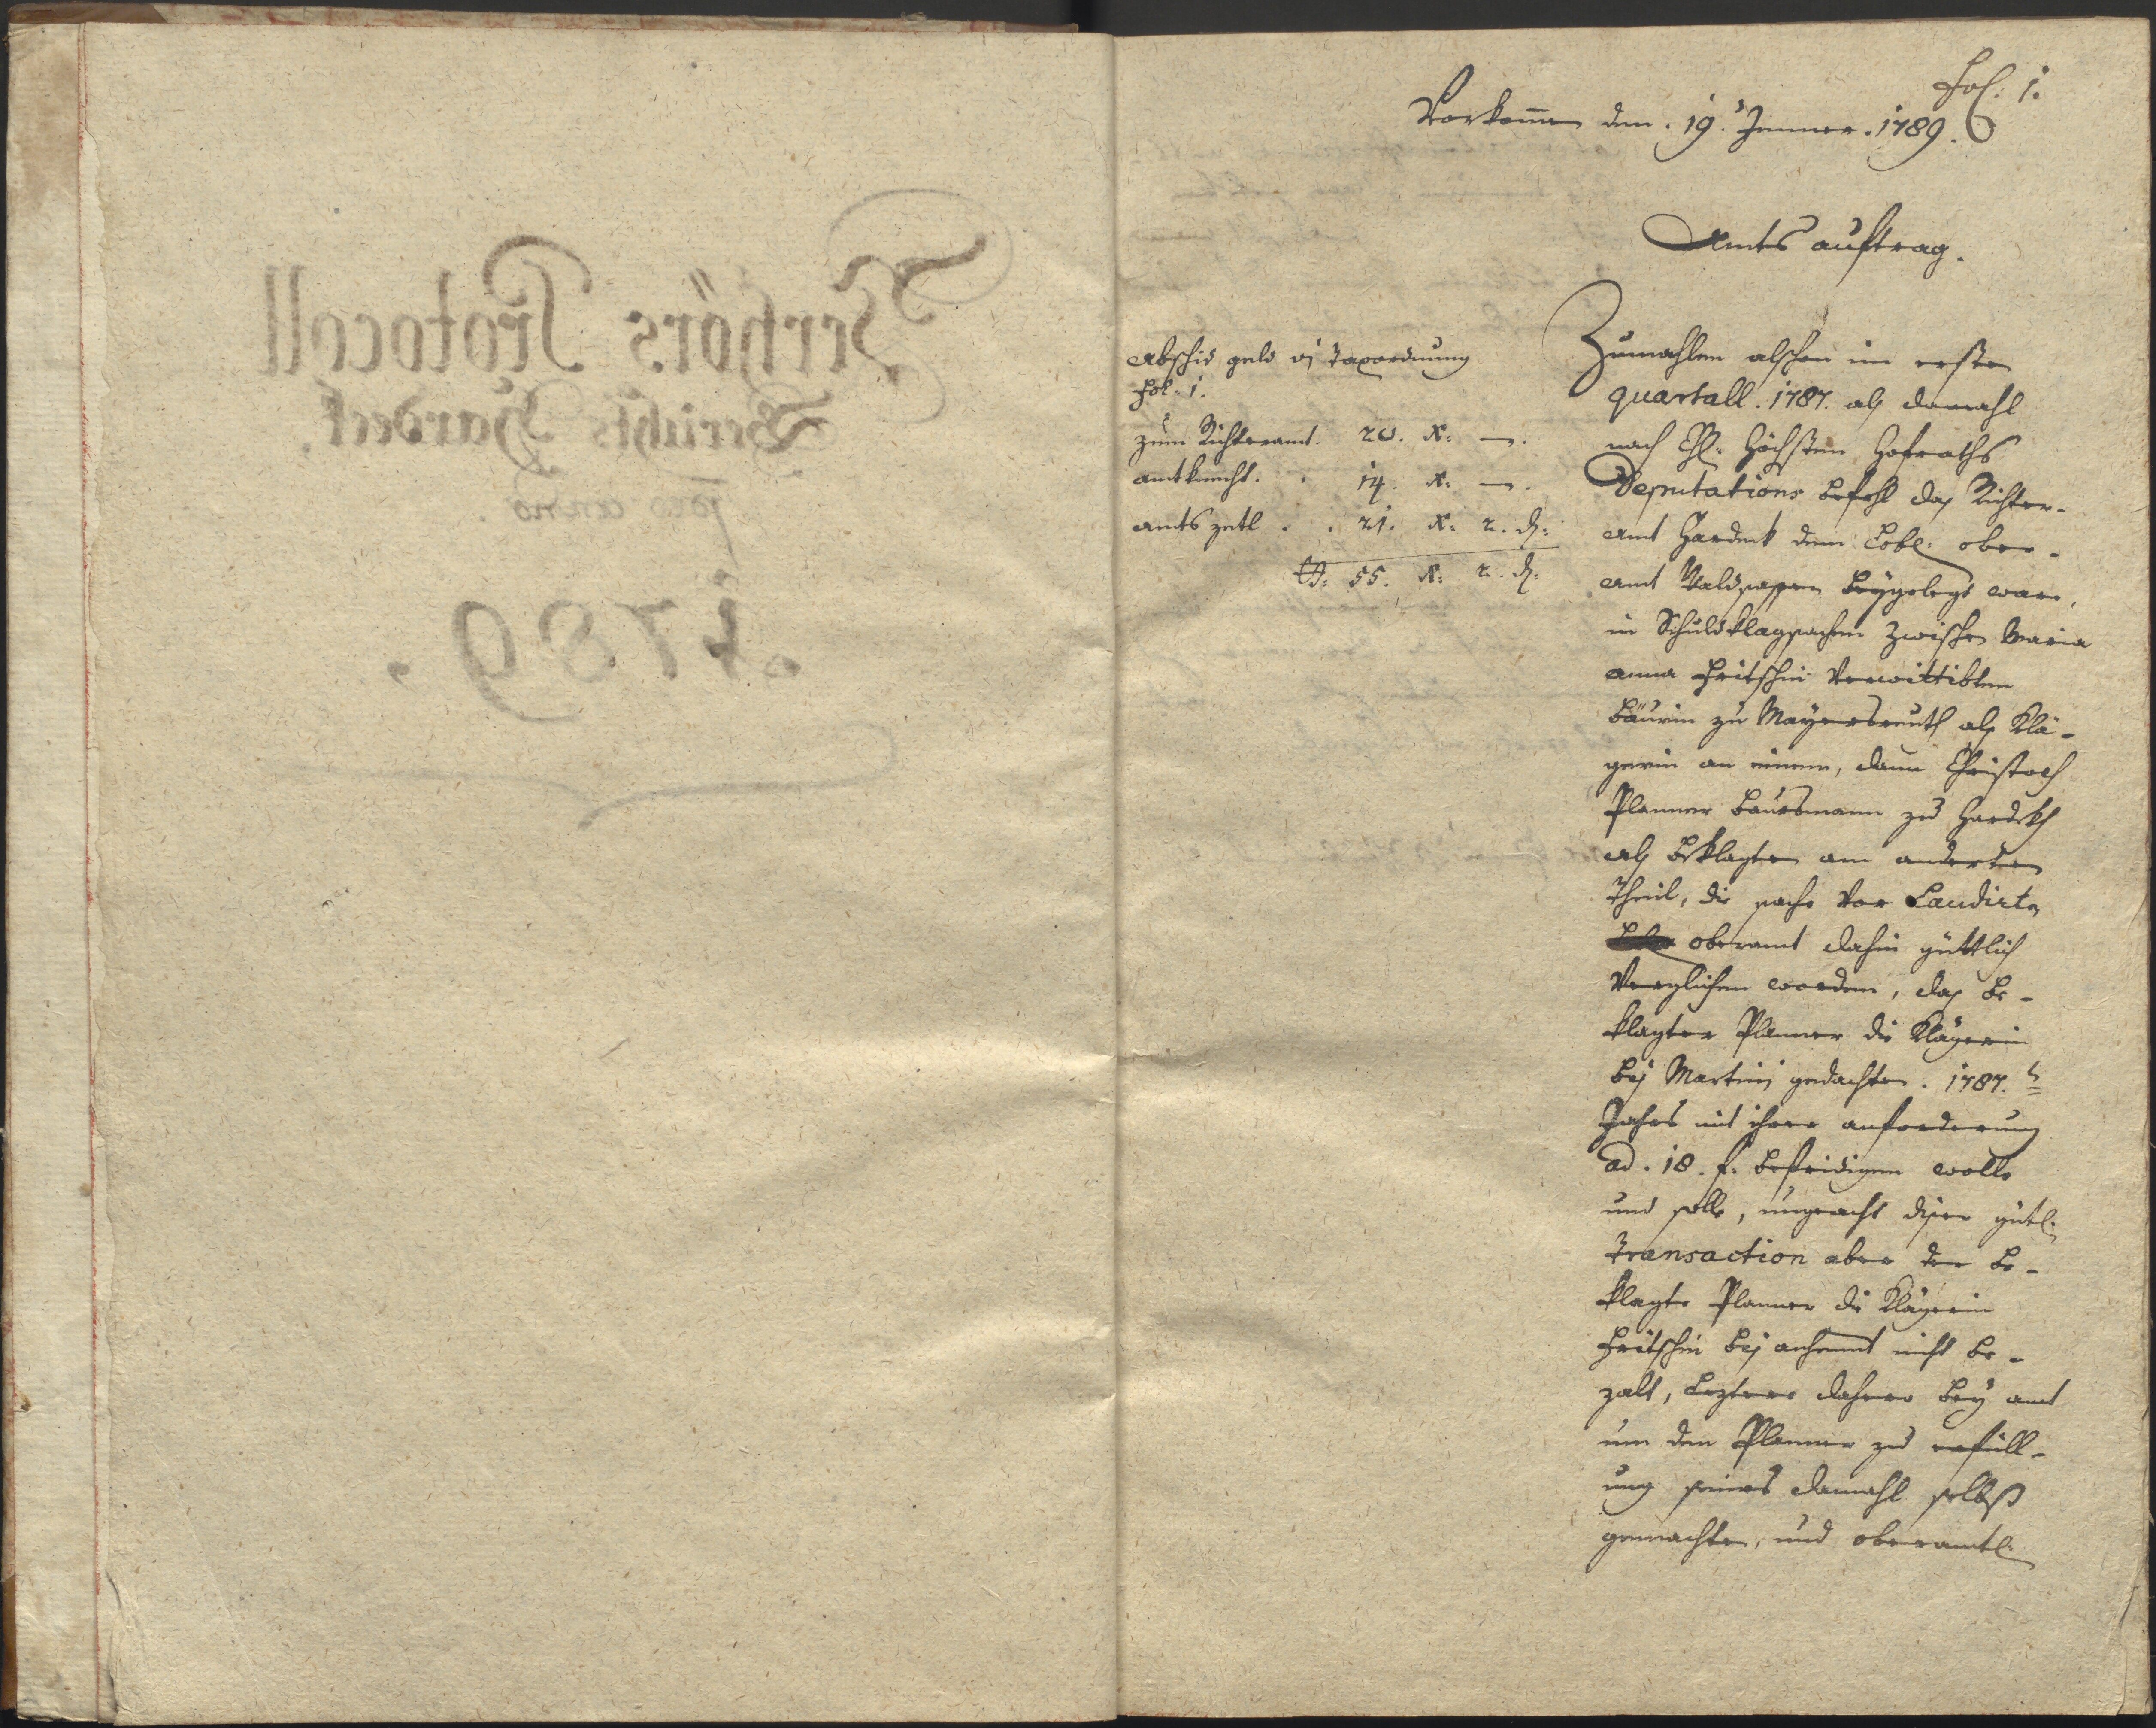 Verhörs Protocoll
Gerichts Hardeck.
pro anno
.1789.
Fol: 1.
Vorkom̄en den .19. Jenner .1789.
Amts auftrag.
Abschid geld vj Taxordnung
Fol: 1.
zum Richteramt. 20. x: —.
amtknecht. . 14. x: —.
amts zetl . . 21. x: 2. d:
55. x: 2. d:
Zumahlen alschon im ersten
quartall. 1787. als damahl
nach Chl: Höchsten Hofraths
Deputations befehl das Richter-
amt Hardeck dem Lobl: ober-
amt Waldsassen beygelegt ware,
in Schuldklagsachen zwischen Maria
anna Fritschin verwittibten
Bäurin zu Mayersreuth als Klä-
gerin an einem, dann Christoph
Planner baursmann zu Hardekh
als beklagten am anderten
Theil, die sache vor Laudirten
oberamt dahin güttlich
verglichen worden, das be-
klagter Planner die Klägerin
bis Martini gedachten. 1787.
Jahrs mit ihrer anforderung
ad. 18. f. befridigen wolle
und solle, ungeacht diser gütl:
Transaction aber der be-
klagte Planner die Klägerin
Fritschin bis anheunt nicht be-
zalt, Leztere dahero bey amt
um den Planner zu erfüll-
ung seines damahl selbst
gemachten, und oberamtl: